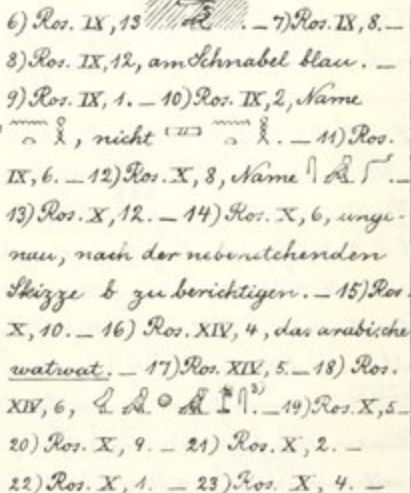 6) Ros. IX, 13 . _ 7) Ros. IX, 8. _
8) Ros. IX, 12, am Schnabel blau. _
9) Ros. IX, 1. _ 10) Ros. IX, 2, Name
, nicht . _ 11) Ros.
IX, 6. _ 12) Ros. X, 8, Name . _
13) Ros. X, 12. _ 14) Ros. X, 6, unge-
nau, nach der nebenstehenden
Skizze b zu berichtigen. _ 15) Ros.
X, 10. _ 16) Ros. XIV, 4, das arabische
watwat. _ 17) Ros. XIV, 5. _ 18) Ros.
XIV, 6, 3) . _ 19) Ros. X, 5 _
20) Ros. X, 9. _ 21) Ros. X, 2. _
22) Ros. X, 1. _ 23) Ros. X, 4. _